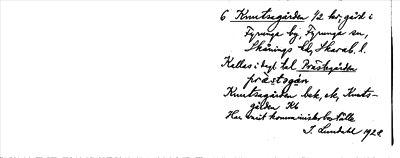 6 Knutsagården 1/2 kr, gård i
Fyrunga by, Fyrunga sn,
Skånings hd, Skarab. l.
Kallas i dagl. tal Prästgården
prästogán
Knutsagården bek, ek, Knuts-
gården Kb
Har varit komministerboställe
I. Lundahl 1928